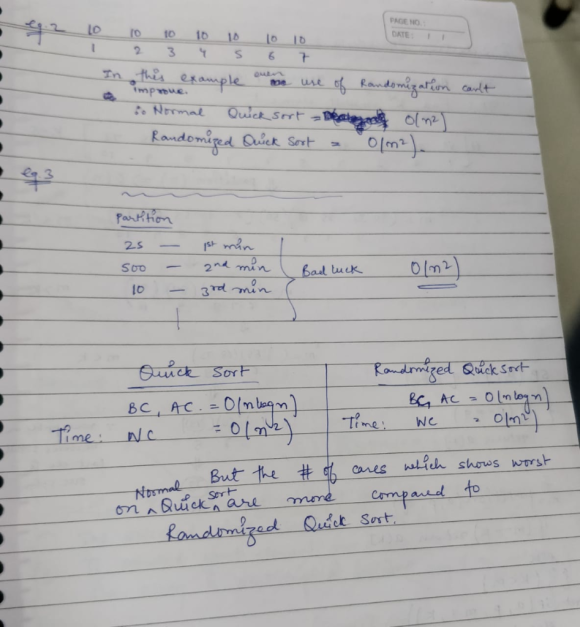 PAGE NO.:
DATE: / /
eg 2 10 10 10 10 10 10 10
1 2 3 4 5 6 7
In this example even use of Randomization can't
improve.
∴ Normal Quick Sort = O(n²)
Randomized Quick Sort = O(n²).
eg 3
Partition
25 — 1st min
500 — 2nd min
10 — 3rd min
Bad luck O(n²)
Quick Sort
BC, AC. = O(n log n)
Time: WC = O(n^2)
Randomized Quick sort
BC, AC = O(n log n)
Time: WC = O(n²)
But the # of cases which shows worst
on Normal Quick sort are more compared to
Randomized Quick Sort.